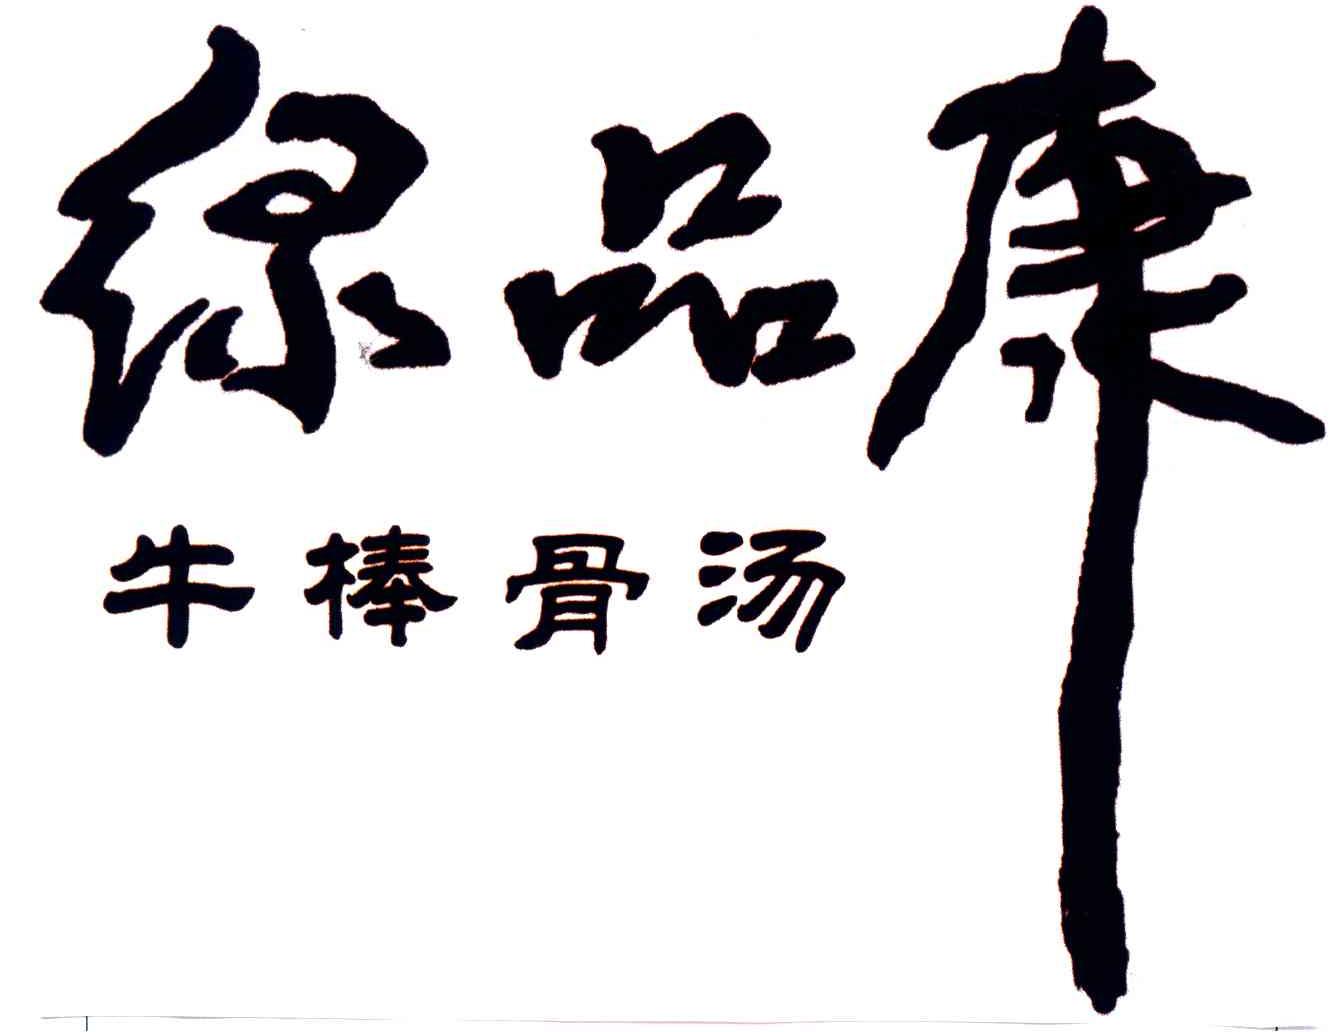 绿品康
牛棒骨汤